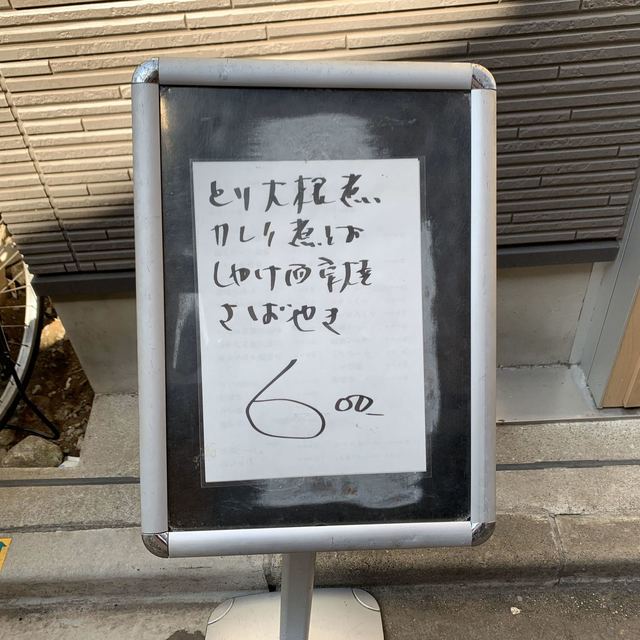 とり大根煮
カレイ煮付
しゃけ西京焼
さばやき
600-